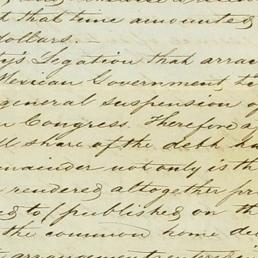 t that time amounted
dollars.
y's Legation that arra
Mexican Government to
general suspension of
n Congress. Therefore a
ll share of the debt ha
mainder not only is th
rendered altogether pr
ed to (published on th
the common home de
arrangement entered